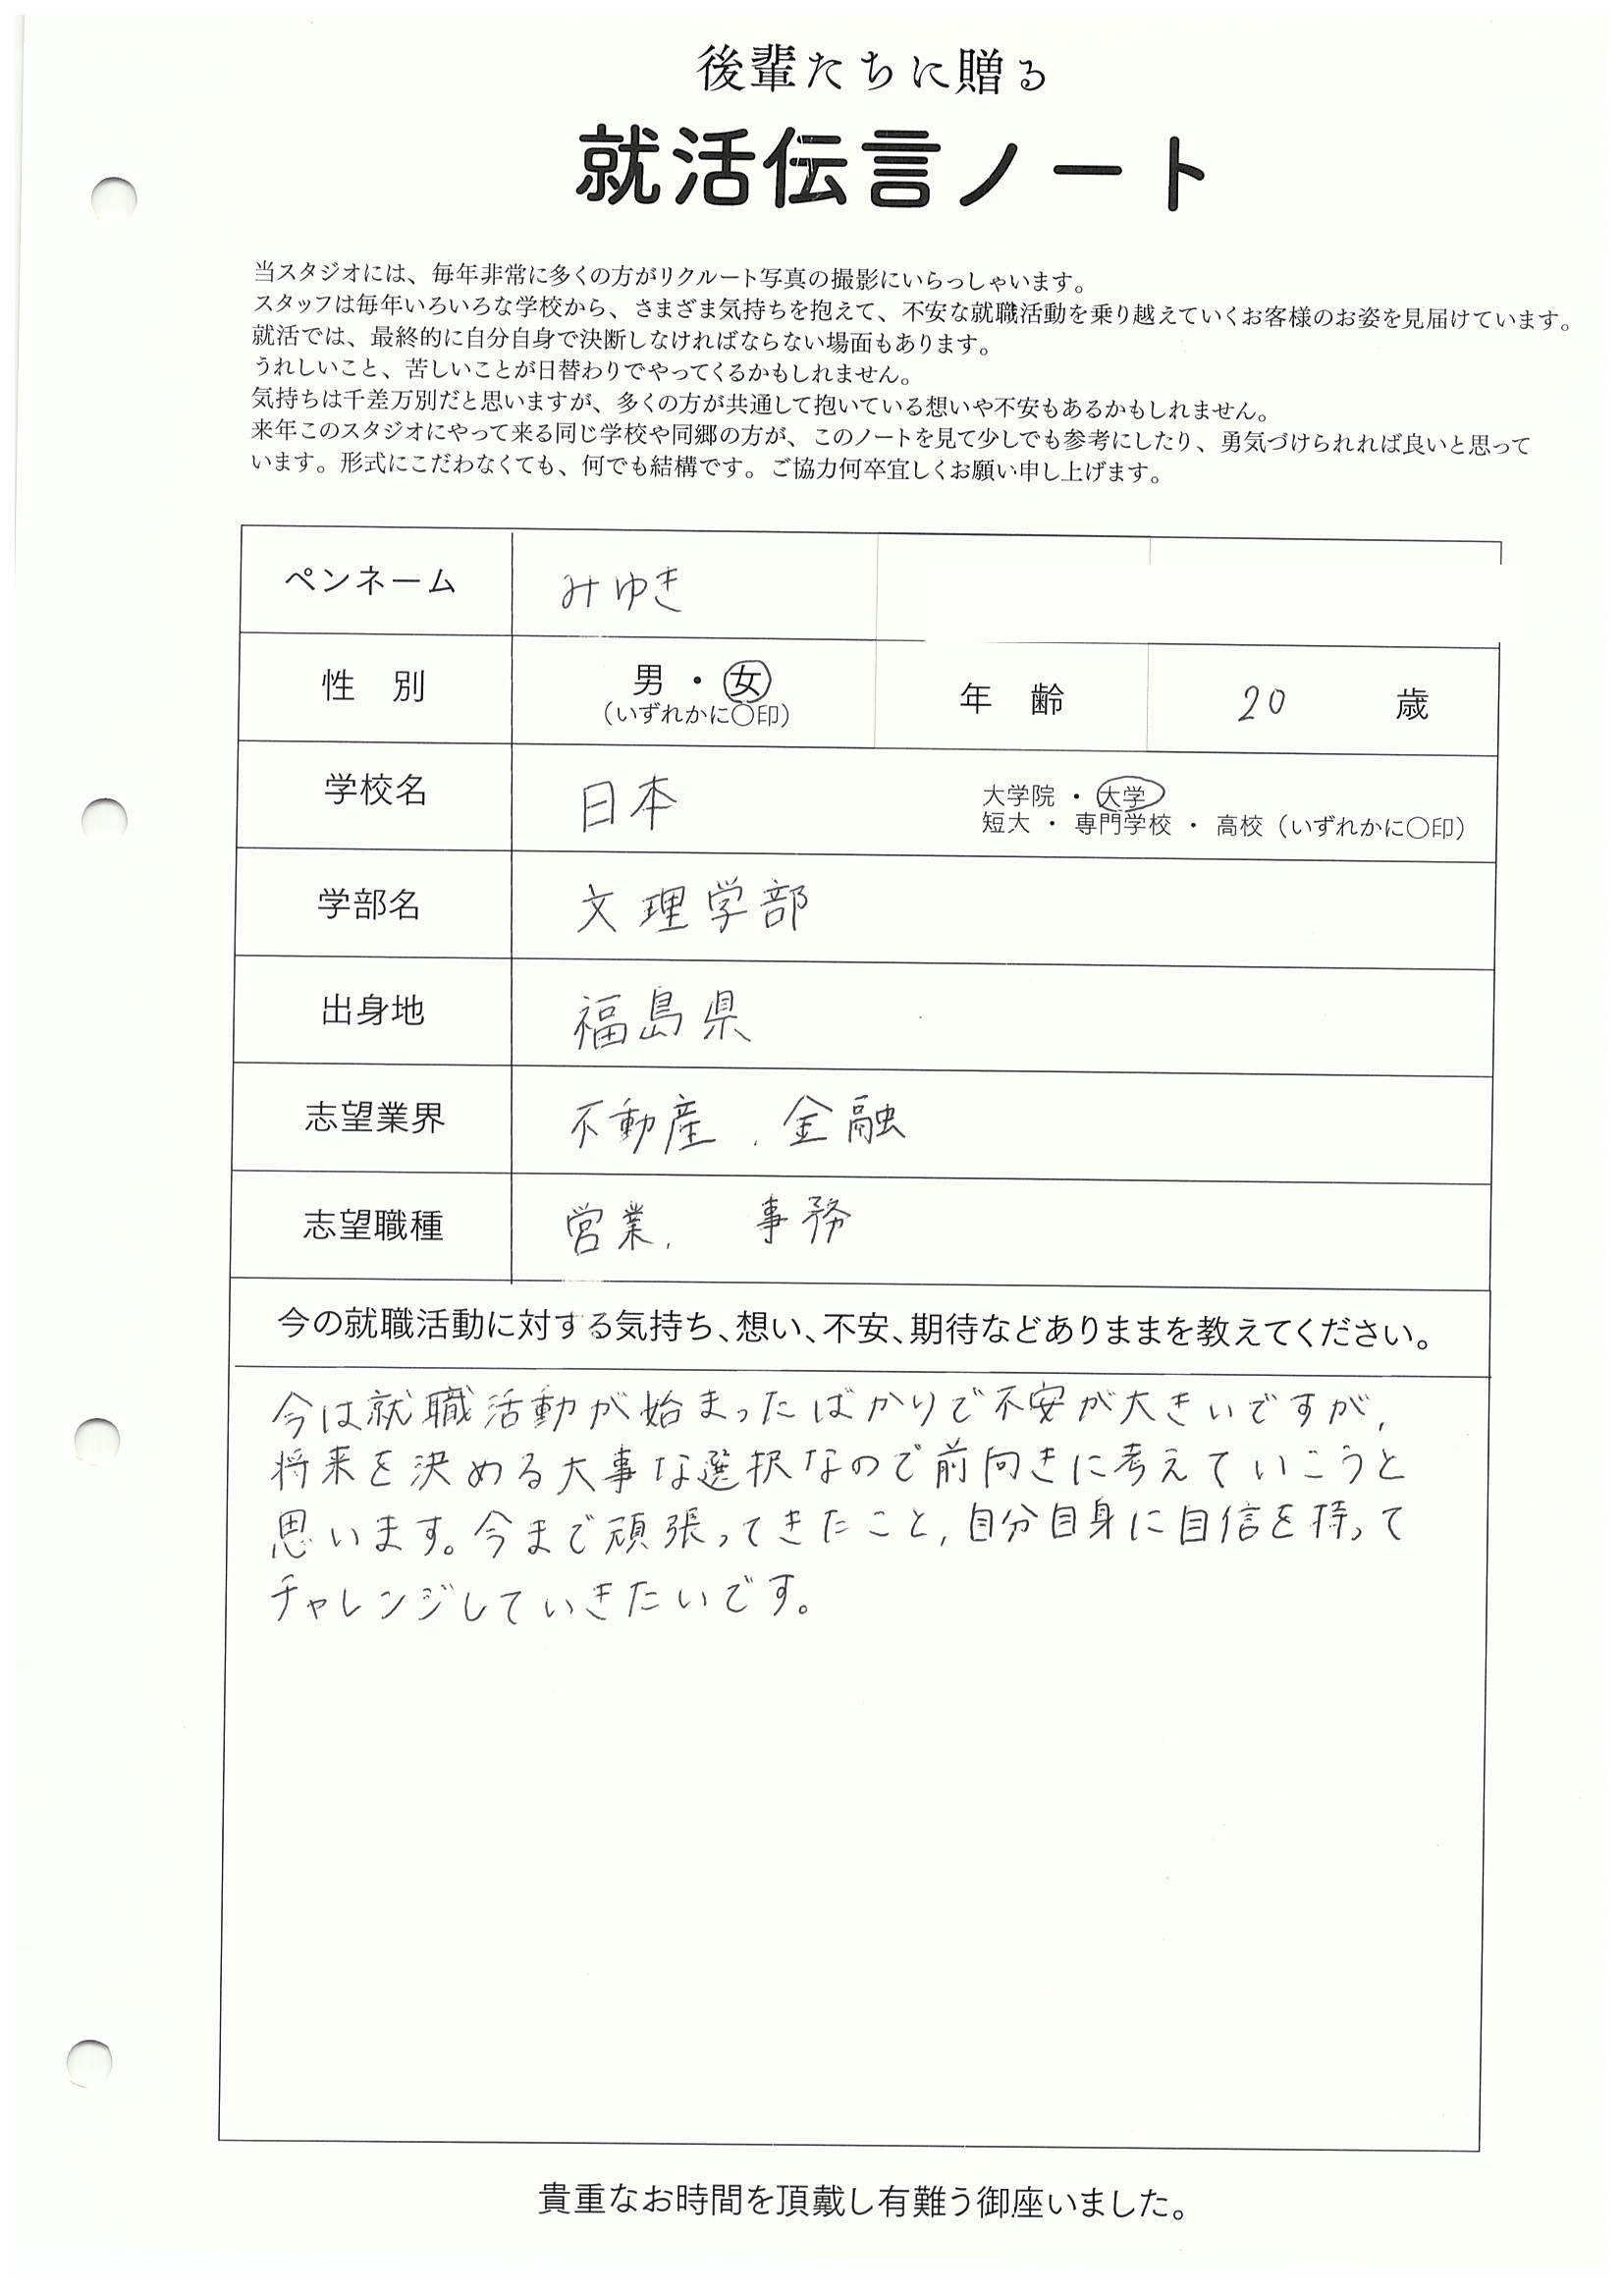 後輩たちに贈る
就活伝言ノート
当スタジオには、毎年非常に多くの方がリクルート写真の撮影にいらっしゃいます。
スタッフは毎年いろいろな学校から、さまざま気持ちを抱えて、不安な就職活動を乗り越えていくお客様のお姿を見届けています。
就活では、最終的に自分自身で決断しなければならない場面もあります。
うれしいこと、苦しいことが日替わりでやってくるかもしれません。
気持ちは千差万別だと思いますが、多くの方が共通して抱いている想いや不安もあるかもしれません。
来年このスタジオにやって来る同じ学校や同郷の方が、このノートを見て少しでも参考にしたり、勇気づけられれば良いと思って
います。形式にこだわなくても、何でも結構です。ご協力何卒宜しくお願い申し上げます。
ペンネーム みゆき
性 別 男 ・ 女 年 齢 20 歳
(いずれかに〇印)
学校名 日本 大学院 ・ 大学
短大 ・ 専門学校 ・ 高校(いずれかに〇印)
学部名 文理学部
出身地 福島県
志望業界 不動産、金融
志望職種 営業、事務
今の就職活動に対する気持ち、想い、不安、期待などありままを教えてください。
今は就職活動が始まったばかりで不安が大きいですが、
将来を決める大事な選択なので前向きに考えていこうと
思います。今まで頑張ってきたこと、自分自身に自信を持って
チャレンジしていきたいです。
貴重なお時間を頂戴し有難う御座いました。